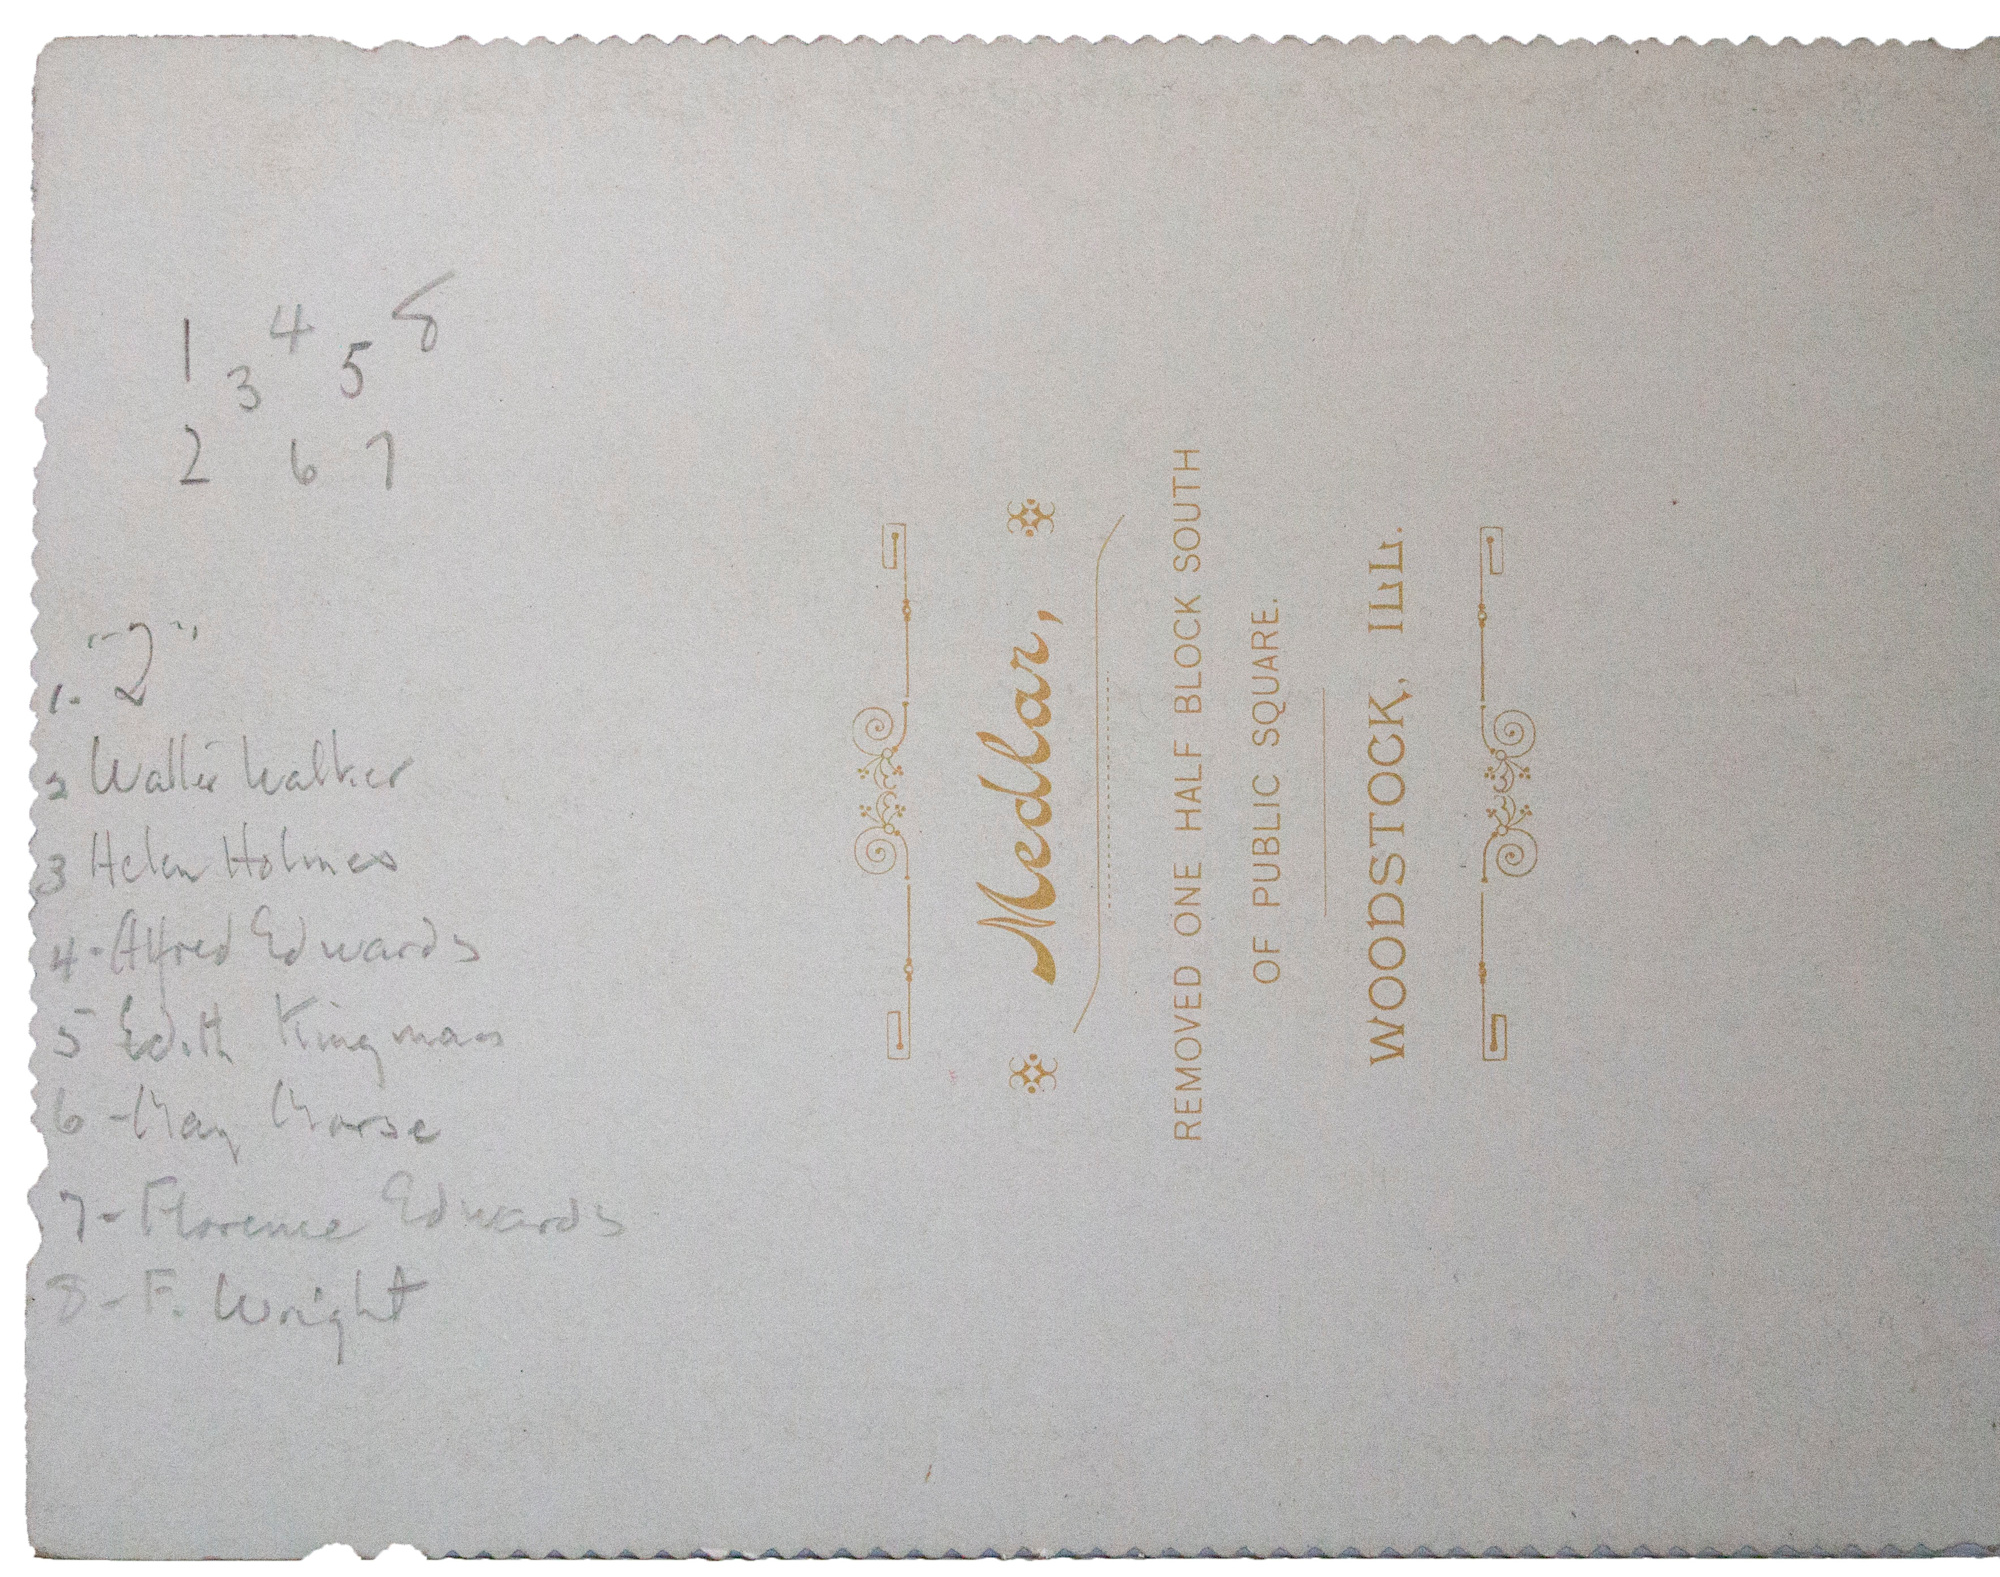 1 3 4 5 8
2 6 7
1. "2"
2 Walter Walker
3 Helen Holmes
4-Alfred Edwards
5 Edith Kingman
6-May Morse
7-Florence Edwards
8-F. Wright
Medlar,
REMOVED ONE HALF BLOCK SOUTH
OF PUBLIC SQUARE.
WOODSTOCK, ILL.